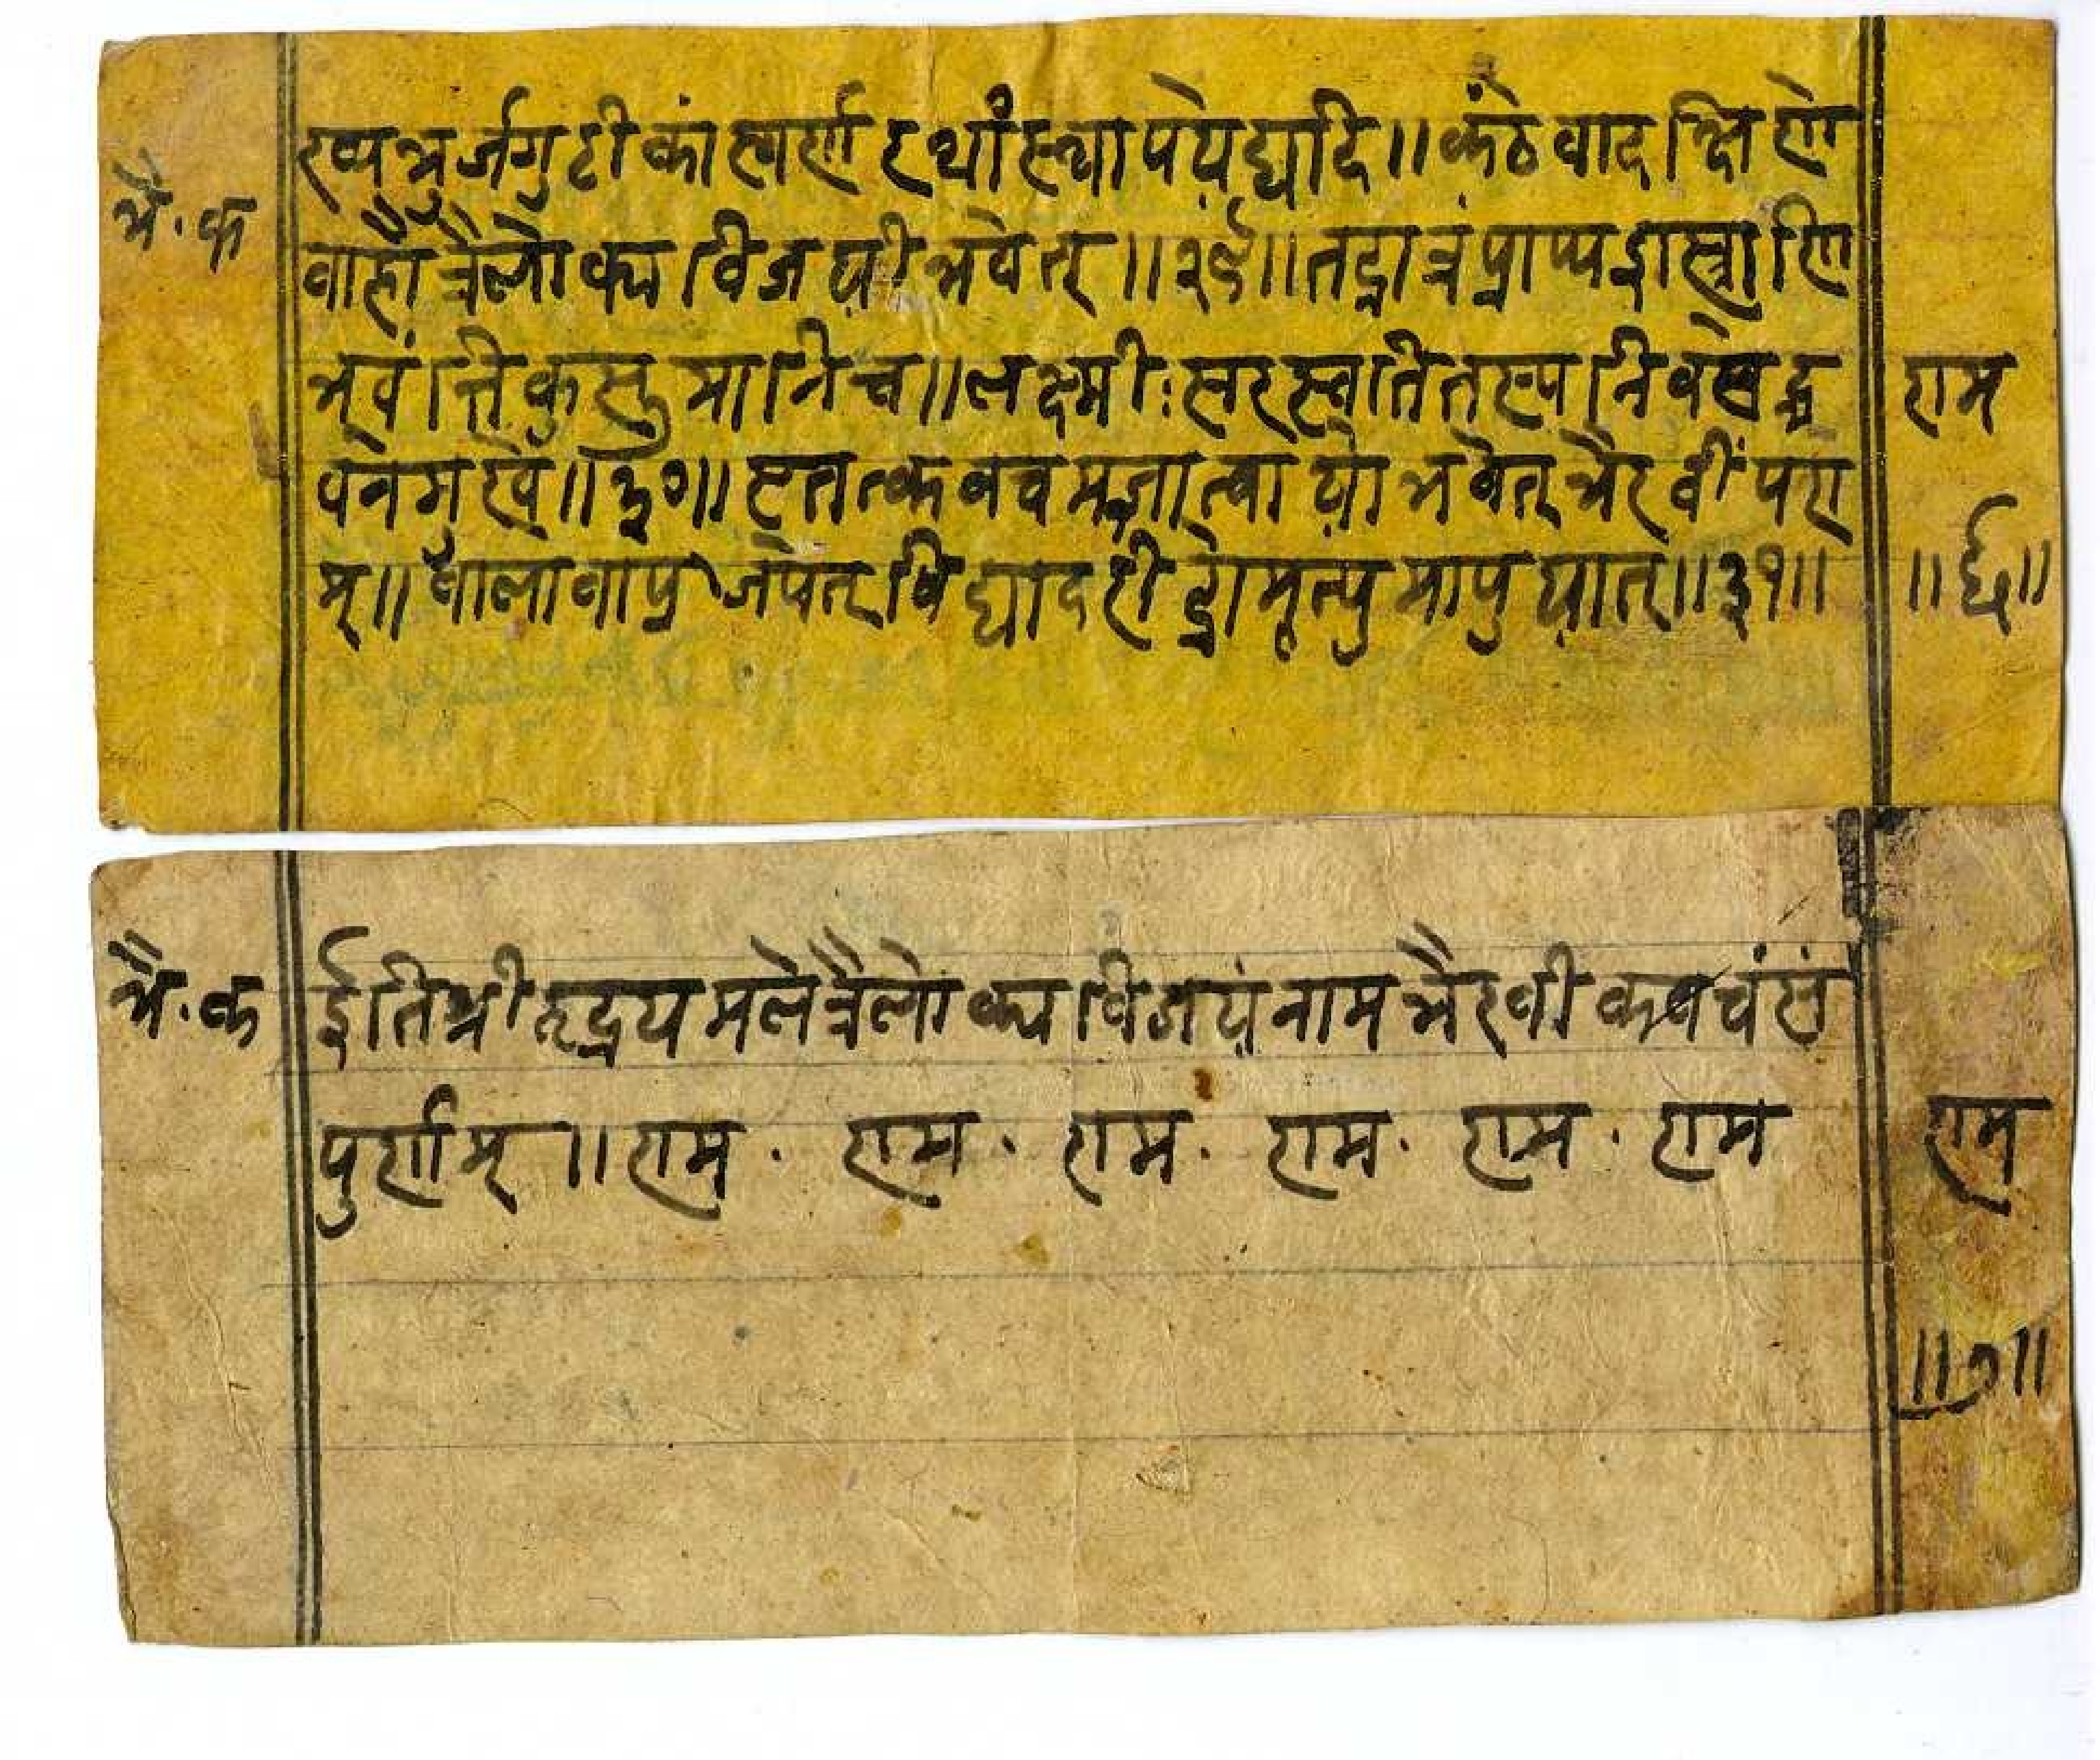 भै.क
रव्यभुर्जगुटीकां स्वर्णरथांस्थापयेद्यदि॥ कंठे वादक्षिणे
वाहौ त्रैलोक्यविजयी भवेत्॥२९॥ तद्गात्रं प्राप्य शस्त्राणि
भवंत्ति कुसुमानि च॥ लक्ष्मीः सरस्वति तस्य निवसेद्भ
राम
वने मुखे॥३०॥ एतत्कवचमज्ञात्वा यो भवेत् भैरवीं परा
म्॥ बालावाप्रजपेत् विद्यादरीद्रो मृत्युमापुयात्॥३१॥
॥६॥
भै.क
ईति श्री हृद्रयमले त्रैलोक्यविजयं नाम भैरवी कवचं सं
पुर्णम्॥ राम . राम . राम . राम . राम . राम
राम
॥७॥